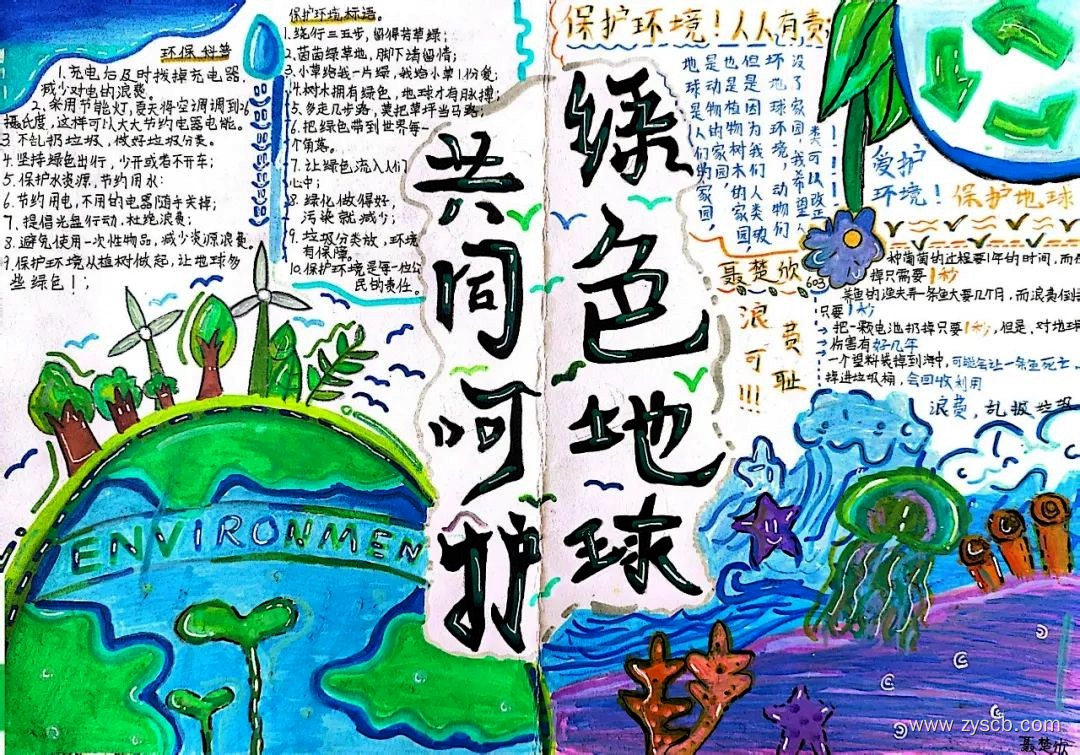 环保科普
1.充电后及时拔掉充电器,
减少对电的浪费。
2.采用节能灯,夏天将空调调到26
摄氏度,这样可以大大节约电器电能。
3.不乱扔垃圾,做好垃圾分类。
4.坚持绿色出行,少开或者不开车;
5.保护水资源,节约用水:
6.节约用电,不用的电器随手关掉;
7.提倡光盘行动,杜绝浪费;
8.避免使用一次性物品,减少资源浪费。
9.保护环境从植树做起,让地球多
些绿色!;
保护环境标语。
1.绕行三五步,留得芳草绿;
2.茵茵绿草地,脚下请留情;
3.小草给我一片绿,我给小草1份爱;
4.树木拥有绿色,地球才有脉搏;
5.多走几步路,莫把草坪当马路;
6.把绿色带到世界每一
个角落。
7.让绿色流入人们
心中;
8.绿化做得好,
污染就减少;
9.垃圾分类放,环境
有保障。
10.保护环境是每一位公
民的责任。
绿色地球
共同呵护
ENVIRONMEN
保护环境!人人有责;
类可以改正
没了家园,我希望人
坏地球环境,动物们
但是因为我们人类破
也是植物树木的家园,
是动物的家园,
地球是人们的家园,
爱护
环境!
保护地球
聂楚欣
603
浪费
可耻
!!!
种葡萄的过程要1年的时间,而
掉只需要1秒
养鱼的渔夫养一条鱼大要几个月,而浪费
只要1秒
把一颗电池扔掉只要1秒,但是,对地球
伤害有好几年
一个塑料袋掉到海中,可能会让一条鱼死亡
掉进垃圾桶,会回收利用
浪费,乱扔垃圾
www.zyscb.com
聂楚欣